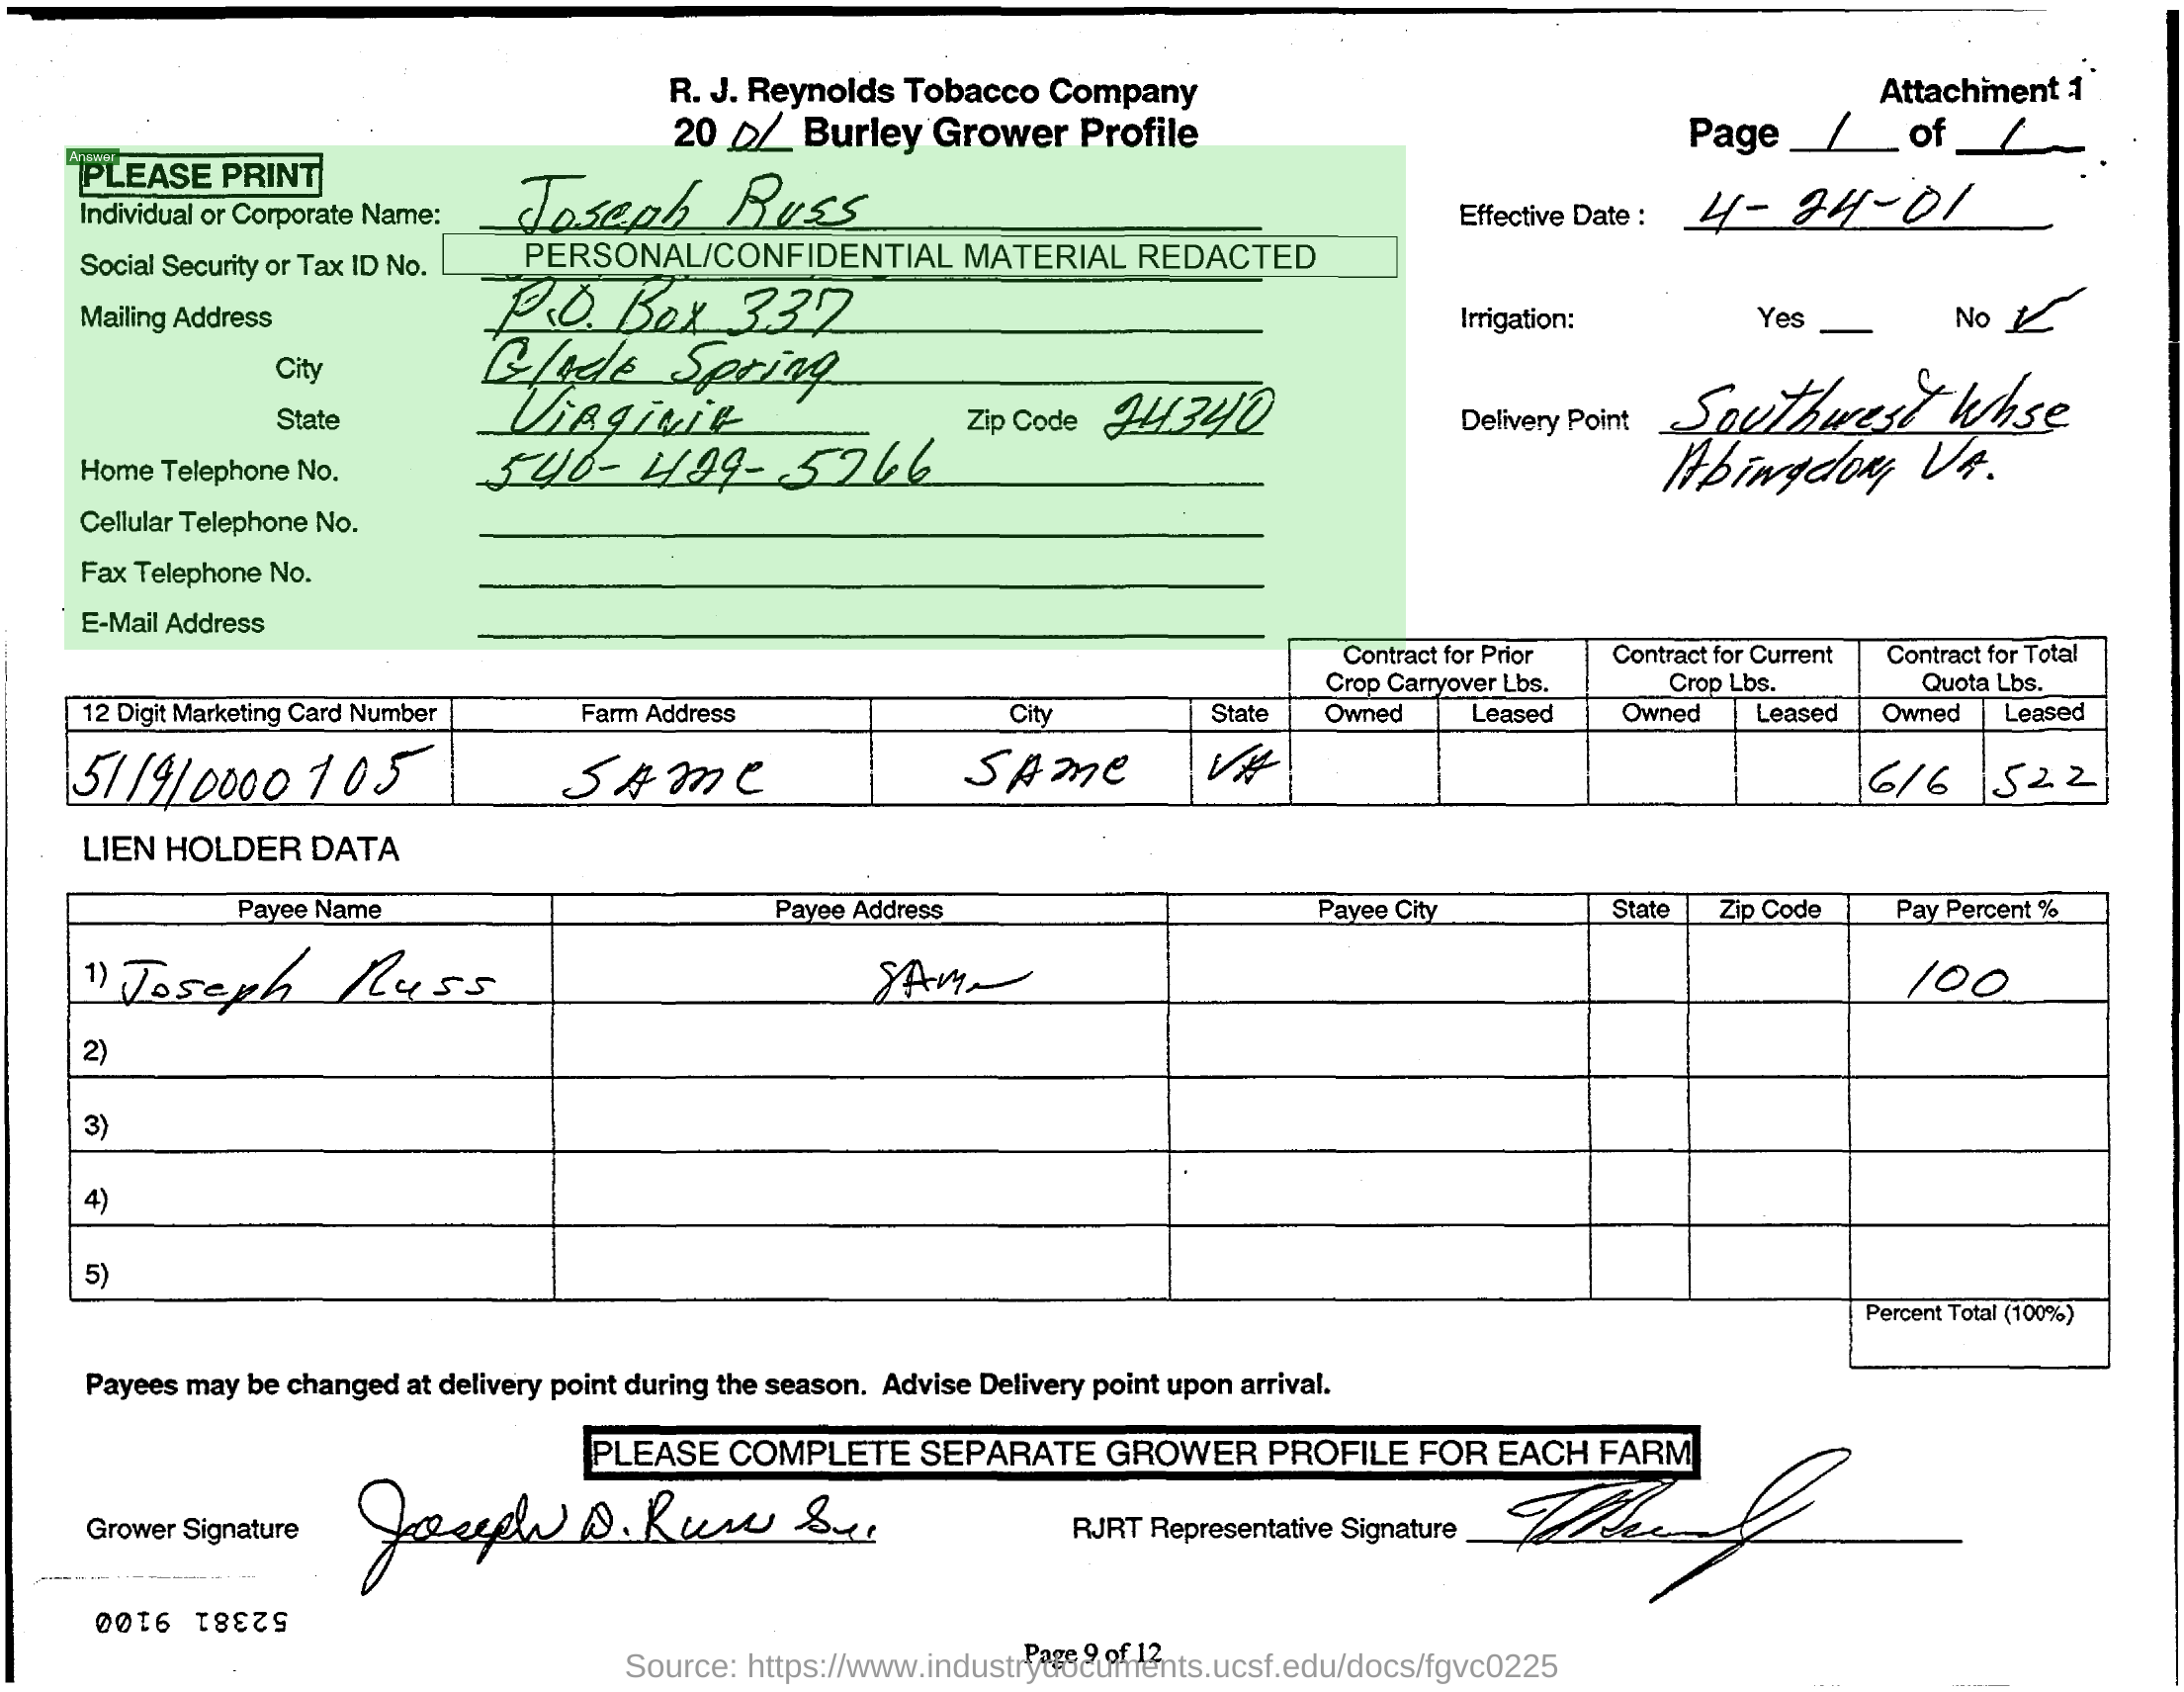 R. J. Reynolds Tobacco Company
Attachment 1
20 01 Burley Grower Profile
Page 1 of 1
Answer
PLEASE PRINT
Individual or Corporate Name: Joseph Russ
Effective Date : 4-24-01
Social Security or Tax ID No. PERSONAL/CONFIDENTIAL MATERIAL REDACTED
Mailing Address P.O. Box 337
Irrigation: Yes No ✓
City Glade Spring
State Virginia Zip Code 24340
Delivery Point Southwest Whse
Abingdon, VA.
Home Telephone No. 540-429-5766
Cellular Telephone No.
Fax Telephone No.
E-Mail Address
Contract for Prior Crop Carryover Lbs. Contract for Current Crop Lbs. Contract for Total Quota Lbs.
12 Digit Marketing Card Number Farm Address City State Owned Leased Owned Leased Owned Leased
511910000105 SAME SAME VA 616 522
LIEN HOLDER DATA
Payee Name Payee Address Payee City State Zip Code Pay Percent %
1) Joseph Russ SAME 100
2)
3)
4)
5)
Percent Total (100%)
Payees may be changed at delivery point during the season. Advise Delivery point upon arrival.
PLEASE COMPLETE SEPARATE GROWER PROFILE FOR EACH FARM
Grower Signature Joseph D. Russ Sr.
RJRT Representative Signature
52381 9100
Page 9 of 12
Source: https://www.industrydocuments.ucsf.edu/docs/fgvc0225